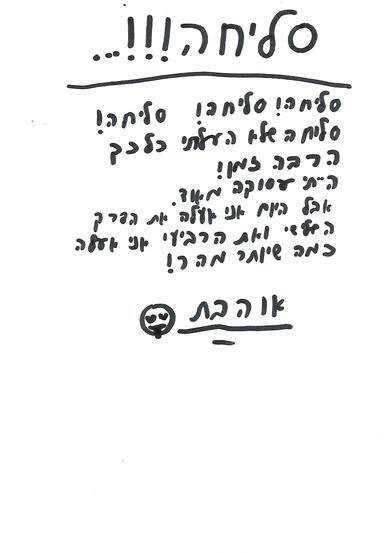 סליחה!!!...
סליחה! סליחה! סליחה!
סליחה שלא העלתי כל כך
הרבה זמן!
הייתי עסוקה מאוד.
אבל היום אני אעלה את הפרק
השלישי ואת הרביעי אני אעלה
כמה שיותר מהר!
אוהבת